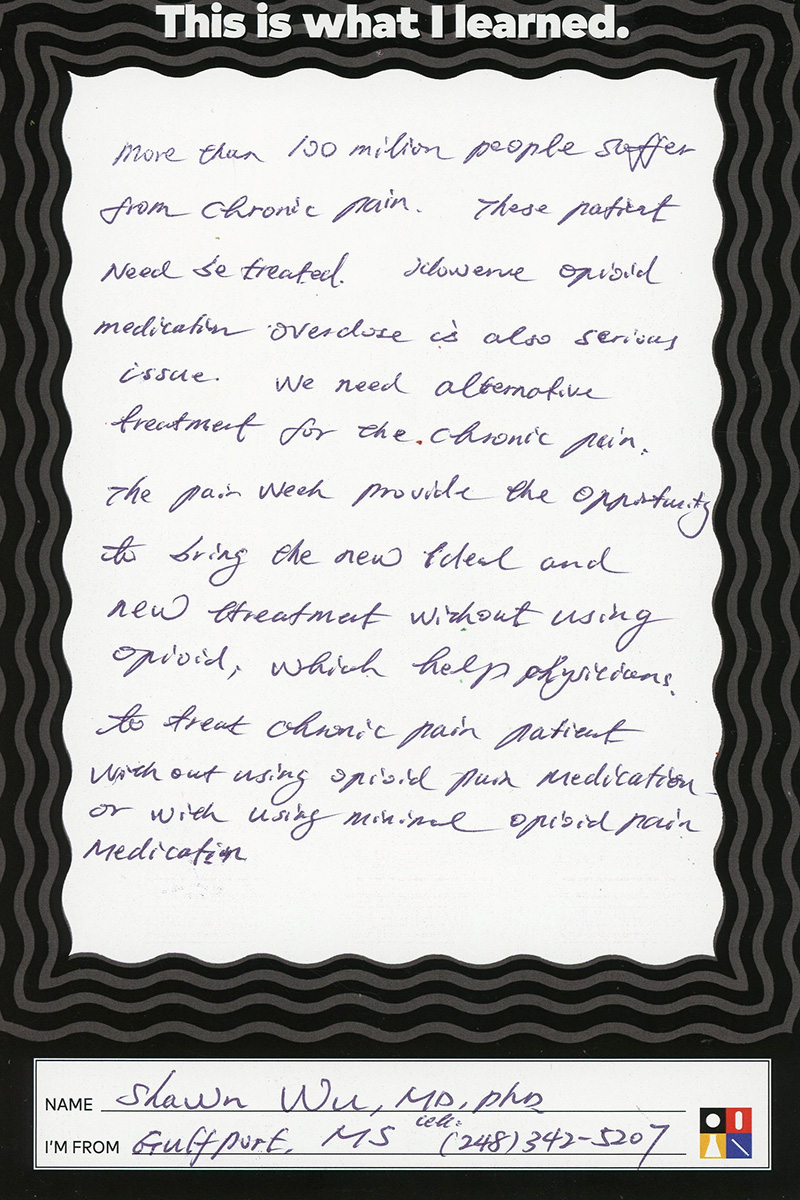 This is what I learned.
More than 100 milion people suffer
from chronic pain. These patient
Need be treated. Howerve opioid
medication overdose is also serious
issue. We need alternative
treatment for the chronic pain.
The pain Week provide the opportunity
to bring the new ideal and
new ttreatment without using
opioid, which help physicians
to treat chronic pain patient
without using opioid pain medication
or with using minimal opioid pain
Medication
NAME Shawn Wu, MD, phD
I'M FROM Gulfport, MS cell: (248)342-5207